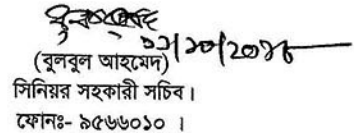 ০১/১০/২০১৮
(বুলবুল আহমেদ)
সিনিয়র সহকারী সচিব।
ফোনঃ- ৯৫৬৬০১০ ।